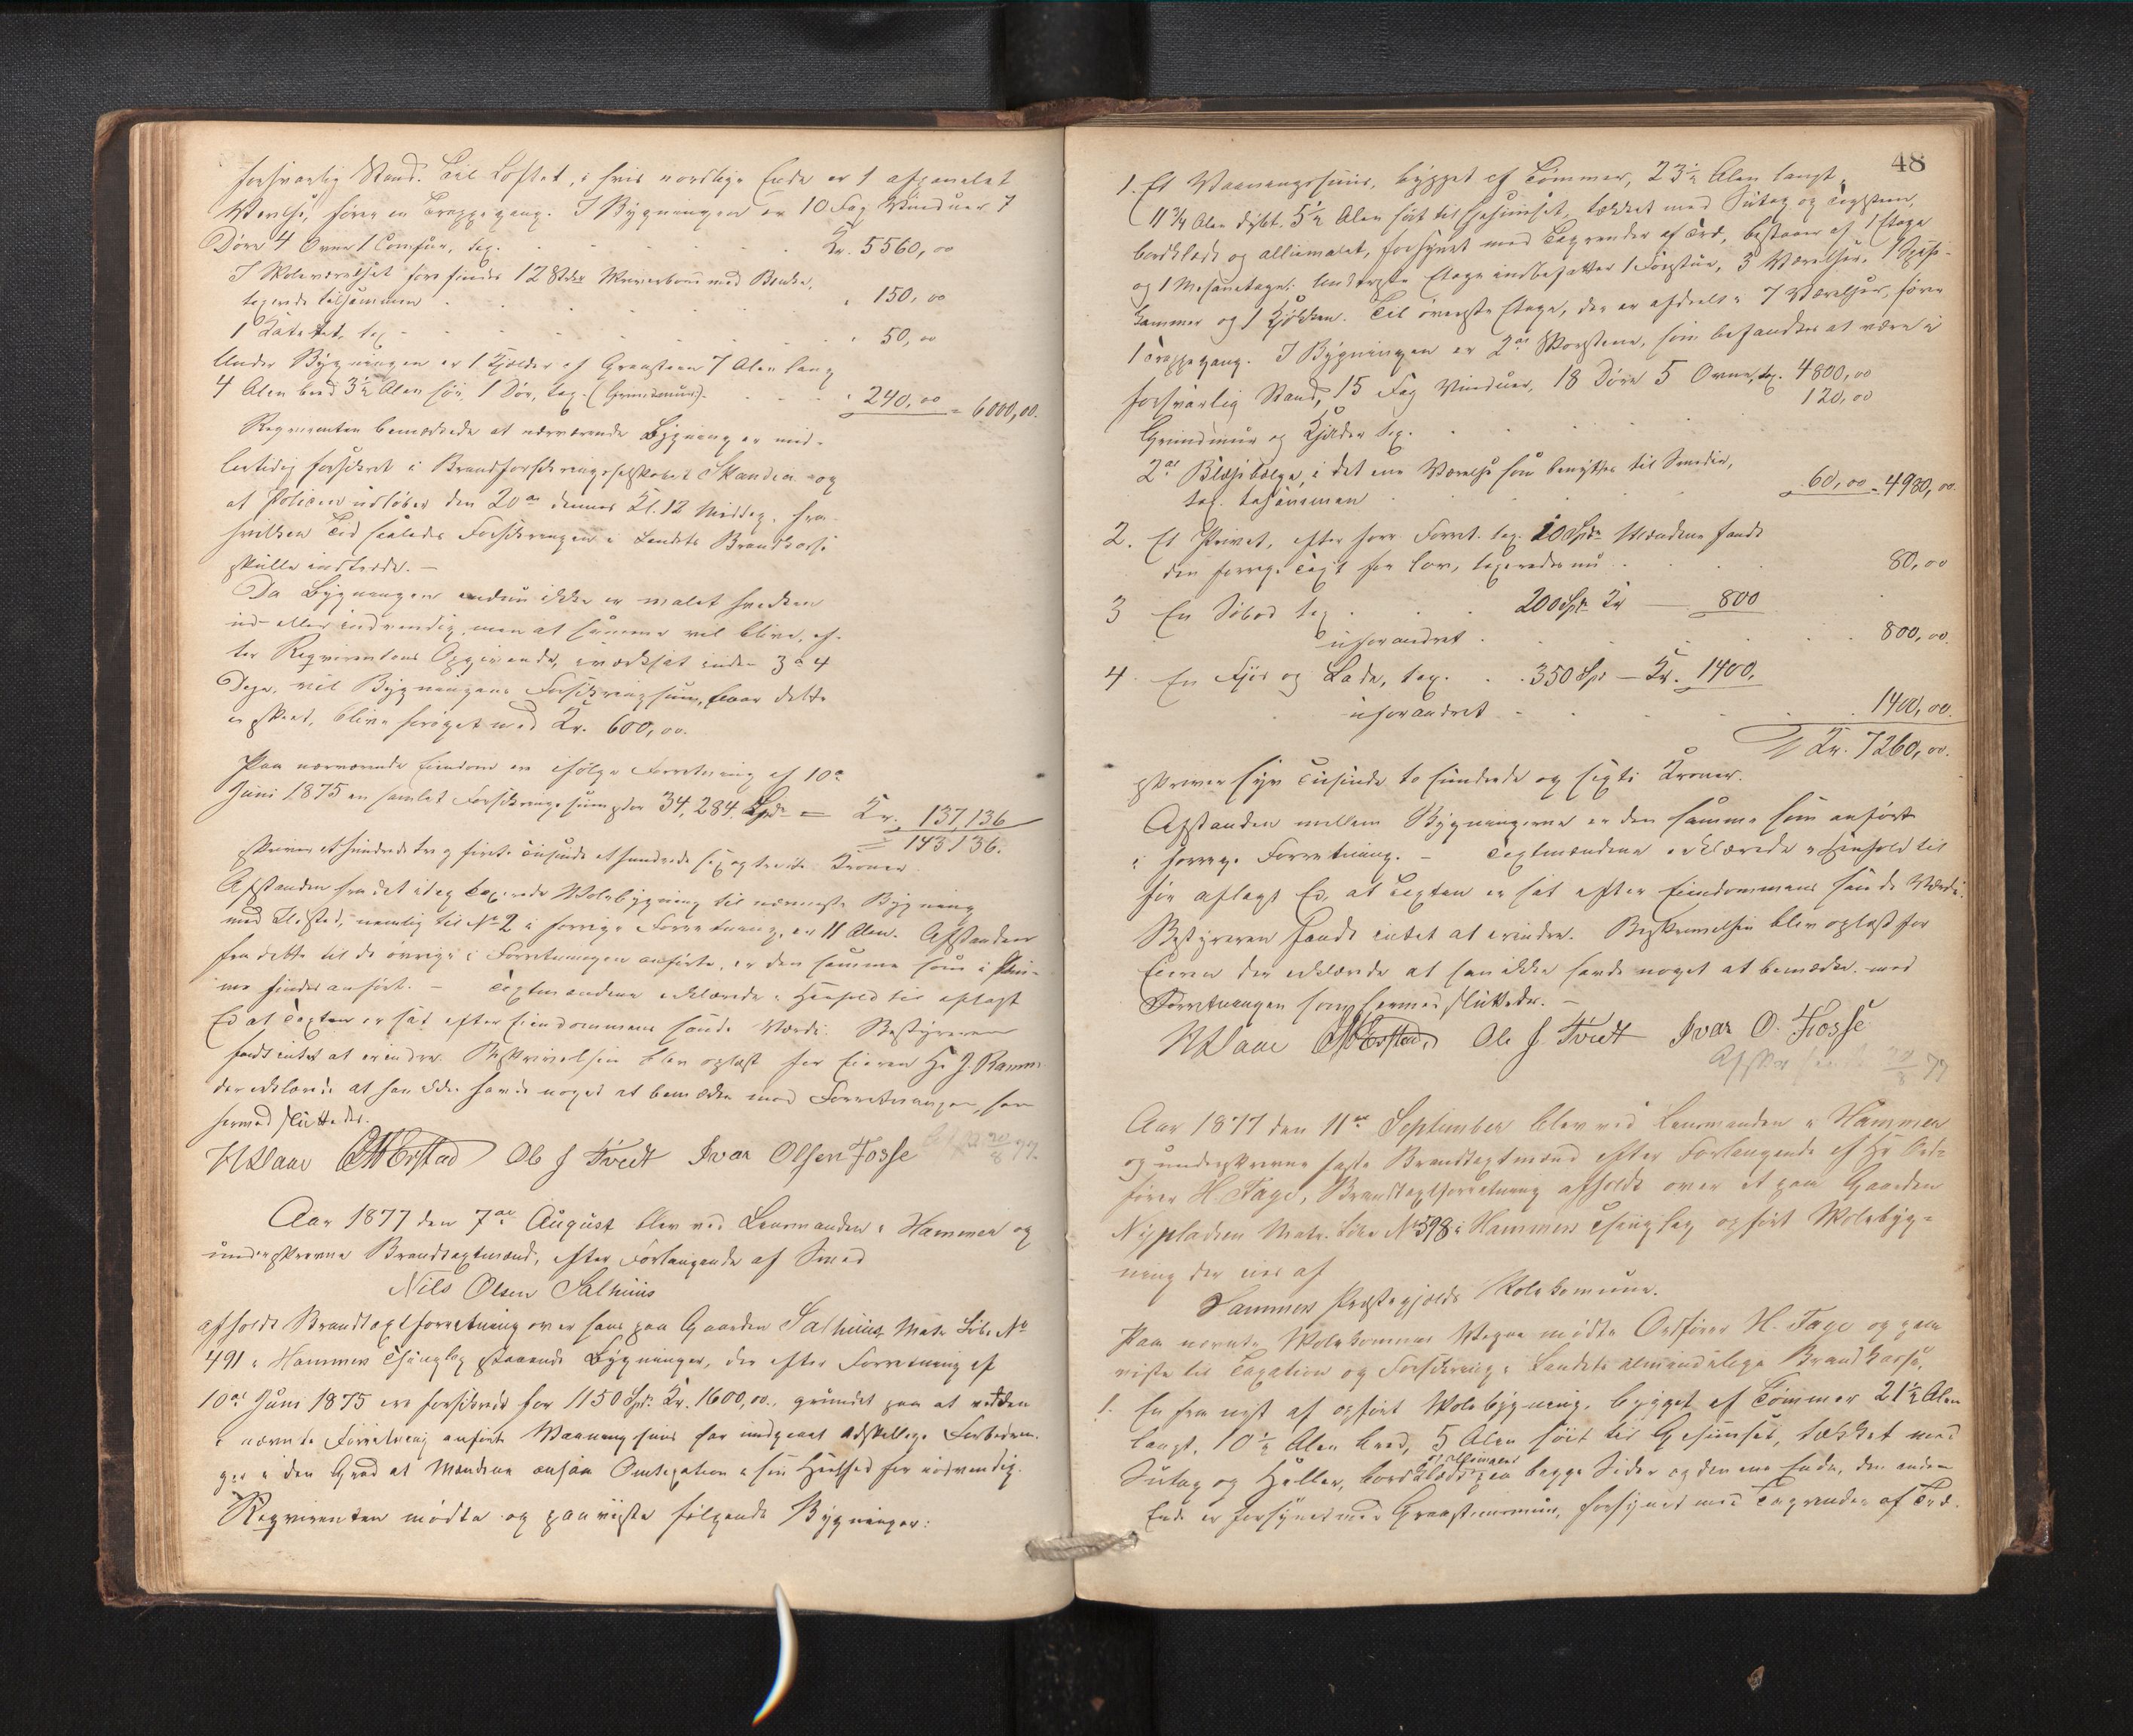 forsvarlig Stand. Til Loftet, i hvis nordlige Ende er 1 afpanelet
Værelse, fører en Trappegang. I Bygningen er 10 Fag Vinduer 7
Døre 4 Ovne 1 Comfur, tax. Kr. 5560,00
I Skoleværelset forefindes 12 Stkr Skriverborde med Bænke,
taxerede tilsammen " 150,00
1 Kathet, tax. " 50,00
Under Bygningen er 1 Kjelder af Graasteen 7 Alen lang
4 Alen bred 3½ Alen høi, 1 Dør, tax. (Grundmur). " 240,00 = 6000,00.
Reqvirenten bemærkede at nærværende Bygning er mid-
lertidig forsikret i Brandforsikringsselskabet Skandia og
at Policen udløber den 20de dennes Kl. 12 Middag, fra
hvilken Tid saaledes Forsikringen i Landets Brandkasse
skulle indtræde. —
Da Bygningen endnu ikke er malet hverken
ud- eller indvendig, men at samme vil blive, ef-
ter Reqvirentens Opgivende, iværksat inden 3 a 4
Dage, vil Bygningens Forsikringssum, naar dette
er skeet, blive forøget med Kr. 600,00.
Paa nærværende Eiendom er ifølge Forretning af 10de
Juni 1875 en samlet Forsikringssum stor 34,284 Spd. = Kr. 137,136
= 143136.
skriver et hundrede tre og firti Tusinde et hundrede sex og tredive Kroner.
Afstanden fra det idag taxerede Skolebygning til nærmeste Bygning
med Ildsted, nemlig til No 2 i forrige Forretning, er 11 Alen. Afstanden
fra dette til de øvrige i Forretningen anførte, er den samme som i
findes anført. — Taxtmændene erklærede i Henhold til aflagt
Ed at Taxten er sat efter Eiendommens sande Værdi. Bestyreren
fandt intet at erindre. Beskrivelsen blev oplæst for Eieren Hr J. Ramm
der erklærede at han ikke havde noget at bemærke med Forretningen, som
hermed sluttedes.
Ole J Tvedt Ivar Olsen Fosse 20/8 77.
Aar 1877 den 7de August blev ved Lensmanden i Hammer og
underskrevne Brandtaxtmænd, efter Forlangende af Smed
Nils Olsen Salhuus
afholdt Brandtaxtforretning over hans paa Gaarden Salhuus Matr. Løbe No
491 i Hammer Thinglag staaende Bygninger, der efter Forretning af
10de Juni 1875 ere forsikrede for 1150 Spd. Kr. 1600,00., grundet paa at
i nævnte Forretning anførte Vaaningshuus har undgaaet adskillige Forbedrin-
ger i den Grad at Mændene ansaa Omtaxation i sin Heelhed for nødvendig.
Reqvirenten mødte og paaviste følgende Bygninger:
48
1. Et Vaaningshuus, bygget af Tømmer, 23½ Alen langt
11¾ Alen dybt, 5½ Alen høit til Gesimset, tækket med Sutag og Tagsteen,
bordklædt og alliemalet, forsynet med Tagrender af Træ, bestaaer af 1 Etage
og 1 Mesanetage. Underste Etage indbefatter 1 Forstue, 3 Værelser, 1 Spise-
kammer og 1 Kjøkken. Til øverste Etage, der er afdeelt i 7 Værelser, fører
1 Trappegang. I Bygningen er 2de Skorstene, som befandtes at være i
forsvarlig Stand, 15 Fag Vinduer, 18 Døre 5 Ovne, tax. 4800,00
Grundmur og Kjelder tax. 120,00
2de Blæsebælge, i det ene Værelse som benyttes til Smedie,
tax. tilsammen 60,00 = 4980,00.
2. Et Privet, efter forr. Forret. tax. 10 Spd. Mændene fandt
den forrige Taxt for lav, taxeredes nu 80,00
3 En Søbod tax. 200 Spd. Kr — 800
uforandret 800,00.
4. En Fjøs og Lade, tax. 350 Spd — Kr. 1400,
uforandret 1400,00.
Kr. 7260,00.
skriver syv Tusinde to hundrede og sexti Kroner.
Afstanden mellem Bygningerne er den samme som anført
i forrige Forretning. — Taxtmændene erklærede i Henhold til
før aflagt Ed, at Taxten er sat efter Eiendommens sande Værdi.
Bestyreren fandt intet at erindre. Beskrivelsen blev oplæst for
Eieren der erklærede at han ikke havde noget at bemærke med
Forretningen som hermed sluttedes. —
Ole J. Tvedt Ivar O. Fosse
20/8 77
Aar 1877 den 11te September blev ved Lensmanden i Hammer
og underskrevne faste Brandtaxtmænd efter Forlangende af Hr Ord-
fører H. Tage, Brandtaxtforretning afholdt over et paa Gaarden
Nypladsen Matr. Løbe No 598 i Hammers Thinglag opført Skolebyg-
ning der eies af
Hammers Præstegjelds Skolekommune.
Paa nævnte Skolekommunes Vegne mødte Ordfører H. Tage og paa-
viste til Taxation og Forsikring i Landets almindelige Brandkasse.
1. En fra nyt af opført Skolebygning, bygget af Tømmer 21½ Alen
langt, 10½ Alen bred, 5 Alen høit til Gesimset, tækket med
Sutag og Heller, bordklædt paa begge Sider og den ene Ende, den anden
Ende er forsynet med Graasteensmuur, forsynet med Tagrender af Træ.